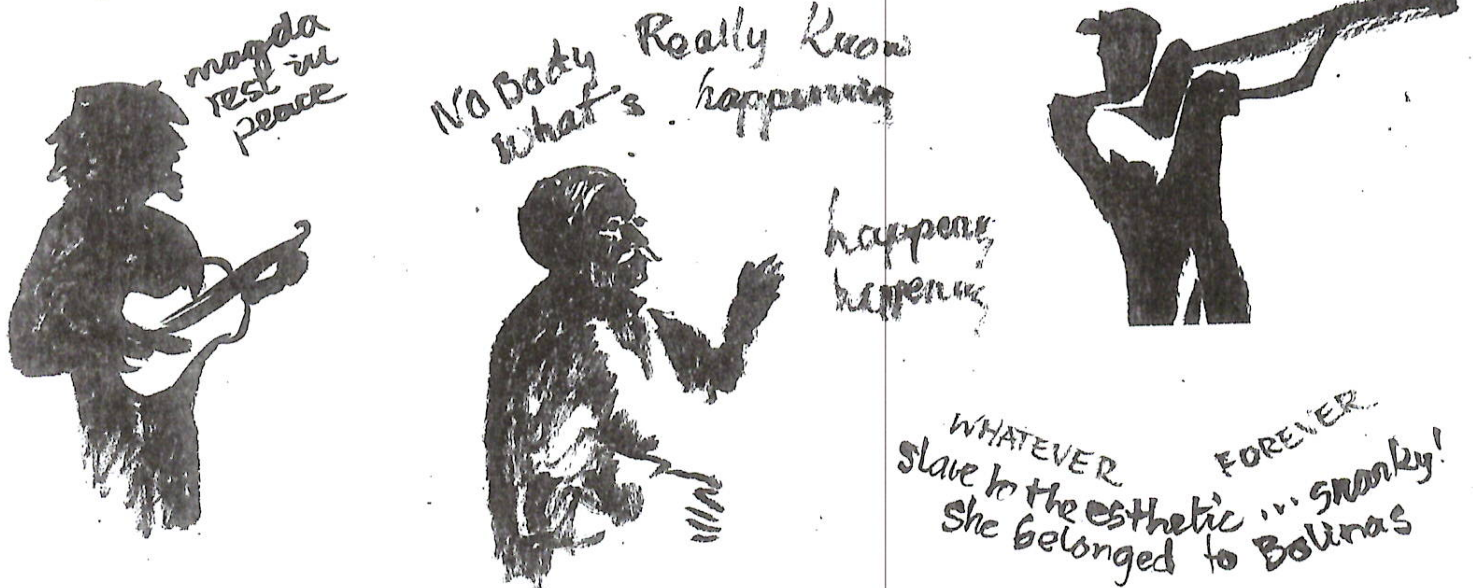 magda
rest in
peace
No Body Really Know
what's happening
happening
happening
WHATEVER FOREVER
slave to the esthetic ... snarky!
She belonged to Bolinas